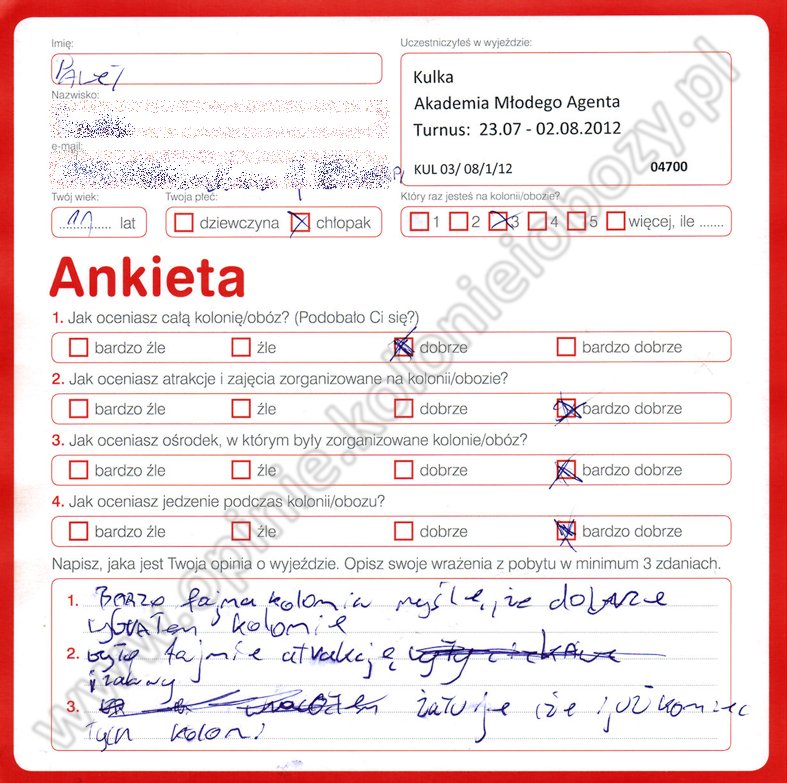 Imię:
Paweł
Uczestniczyłeś w wyjeździe:
Kulka
Akademia Młodego Agenta
Turnus: 23.07 - 02.08.2012
KUL 03/ 08/1/12 04700
Nazwisko:
e-mail:
Twój wiek:
11 lat
Twoja płeć:
dziewczyna chłopak
Który raz jesteś na kolonii/obozie?
1 2 3 4 5 więcej, ile .......
Ankieta
1. Jak oceniasz całą kolonię/obóz? (Podobało Ci się?)
bardzo źle źle dobrze bardzo dobrze
2. Jak oceniasz atrakcje i zajęcia zorganizowane na kolonii/obozie?
bardzo źle źle dobrze bardzo dobrze
3. Jak oceniasz ośrodek, w którym były zorganizowane kolonie/obóz?
bardzo źle źle dobrze bardzo dobrze
4. Jak oceniasz jedzenie podczas kolonii/obozu?
bardzo źle źle dobrze bardzo dobrze
Napisz, jaka jest Twoja opinia o wyjeździe. Opisz swoje wrażenia z pobytu w minimum 3 zdaniach.
1. Barzo fajna kolonia myśle, że dobrze
wybrałem kolonie
2. było fajnie atrakcję
i zabawy
3. żałuje że już koniec
tych koloni
www.opinie.kolonieiobozy.pl